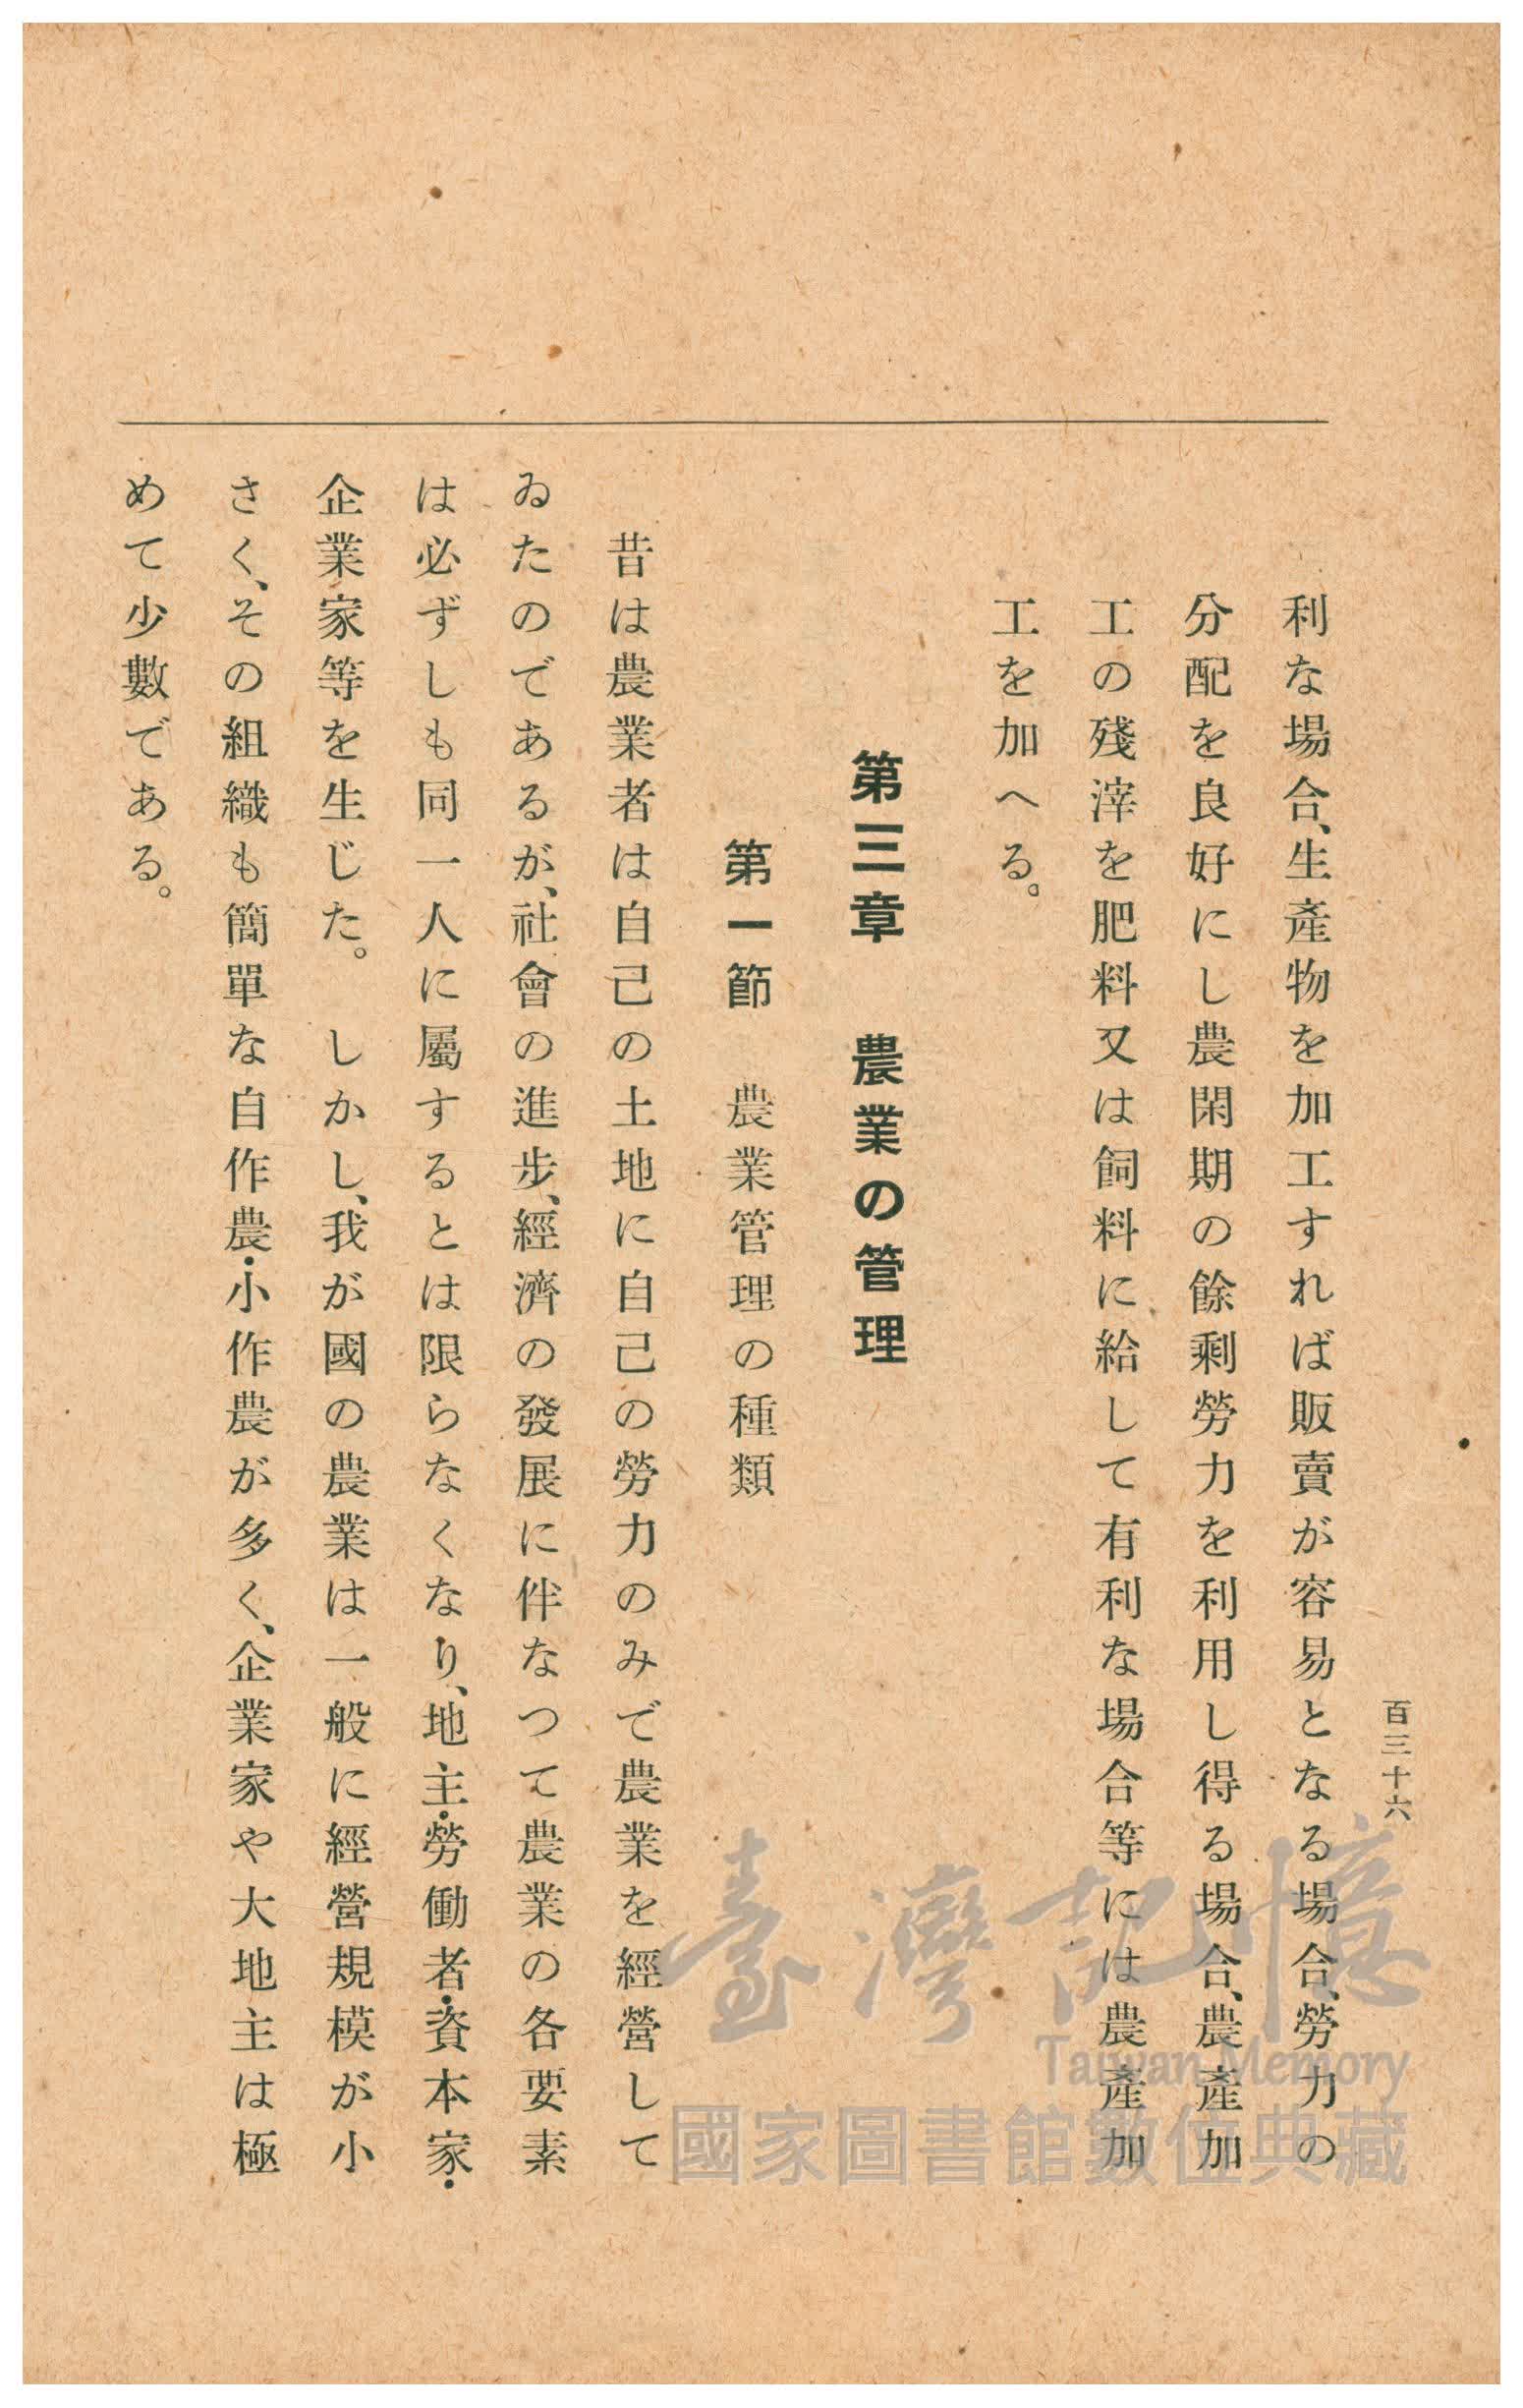 百三十六
利な場合、生產物を加工すれば販賣が容易となる場合、勞力の
分配を良好にし農閑期の餘剩勞力を利用し得る場合、農產加
工の殘滓を肥料又は飼料に給して有利な場合等には農產加
工を加へる。
第三章　農業の管理
第一節　農業管理の種類
昔は農業者は自己の土地に自己の勞力のみで農業を經營して
ゐたのであるが、社會の進步、經濟の發展に伴なつて農業の各要素
は必ずしも同一人に屬するとは限らなくなり、地主・勞働者・資本家・
企業家等を生じた。　しかし、我が國の農業は一般に經營規模が小
さく、その組織も簡單な自作農・小作農が多く、企業家や大地主は極
めて少數である。
臺灣記憶
Taiwan Memory
國家圖書館數位典藏